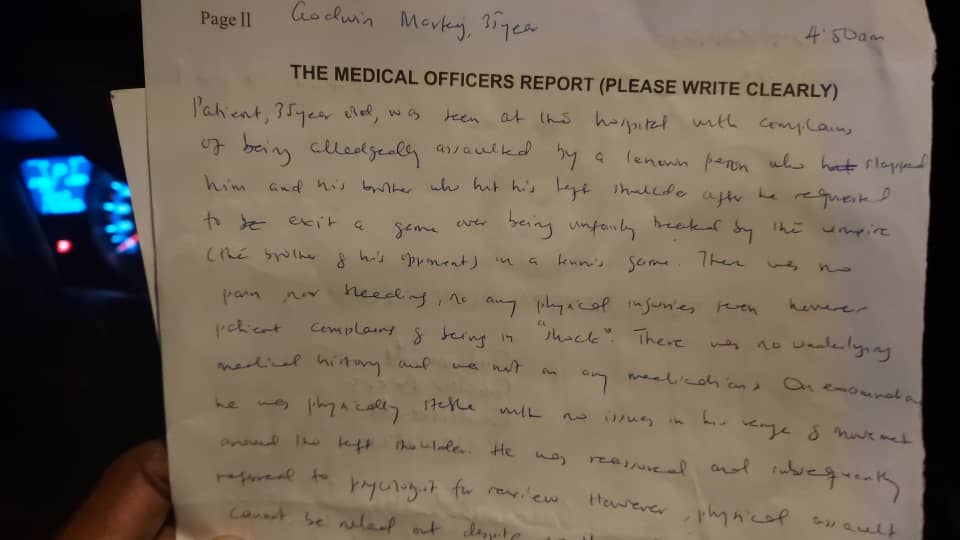 Page II Godwin Martey, 35 year
4:50am
THE MEDICAL OFFICERS REPORT (PLEASE WRITE CLEARLY)
Patient, 35 year old, was seen at this hospital with complains
of being alledgedly assaulted by a known person who slapped
him and his brother who hit his left shoulder after he requested
to exit a game over being unfairly treated by the umpire
(the brother of his opponent) in a tennis game. There was no
pain, nor bleeding, no any physical injuries seen however
patient complains of being in "shock". There was no underlying
medical history and was not on any medications. On examination
he was physically stable with no issues in his range of movement
around the left shoulder. He was reassured and subsequently
referred to psycologist for review. However, physical assault
cannot be ruled out despite